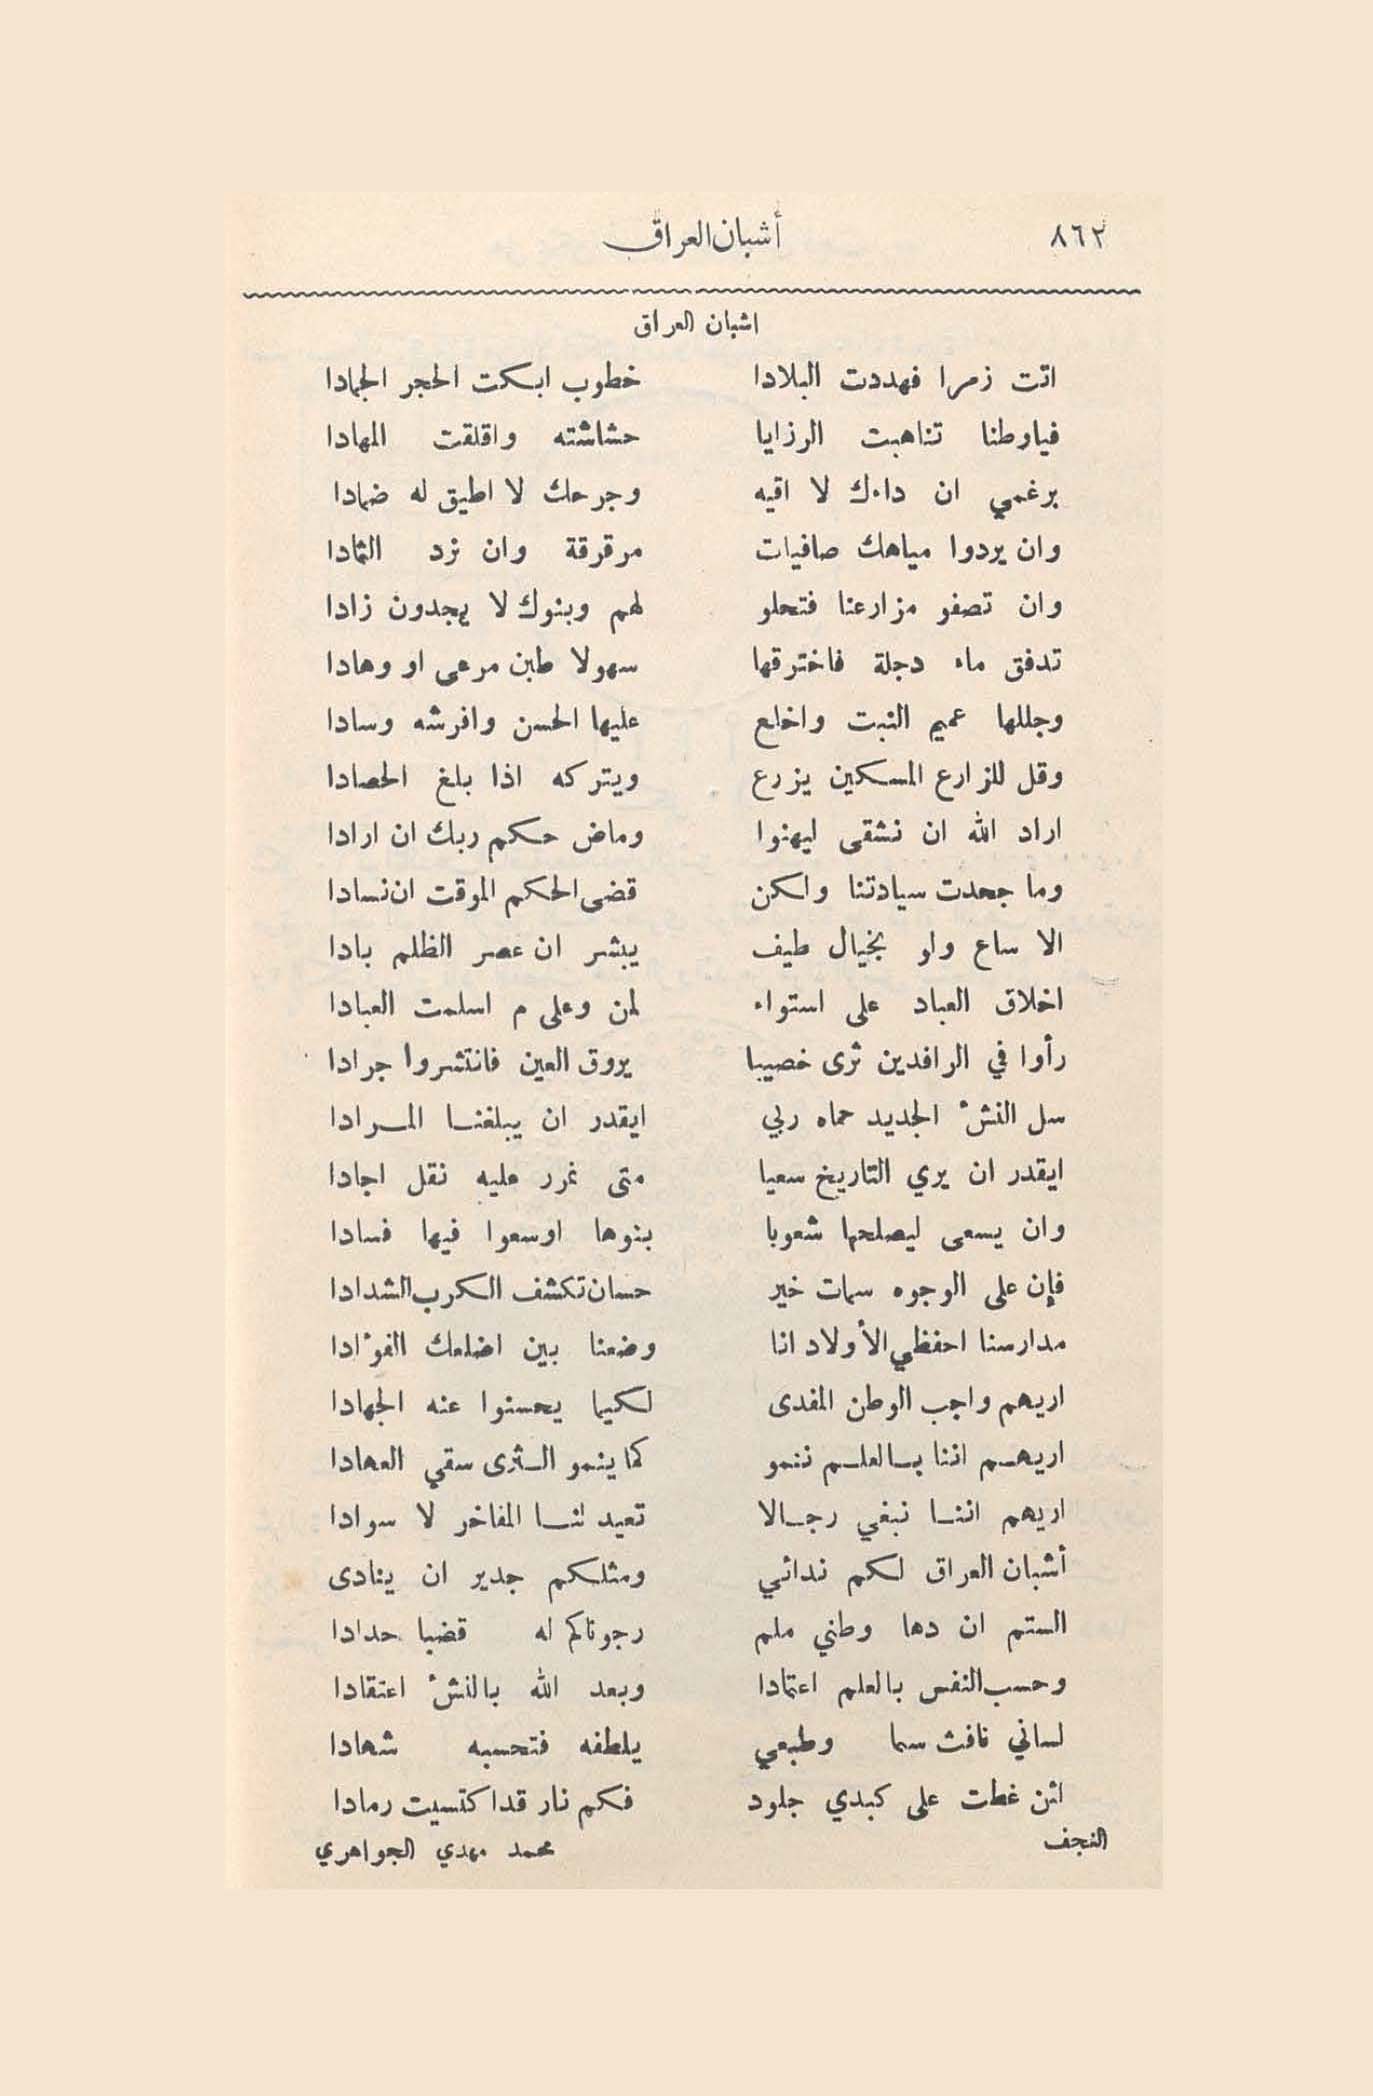 ٨٦٢ أشبان العراق
اشبان العراق
اتت زمرا فهددت البلادا خطوب ابكت الحجر الجمادا
فياوطنا تناهبت الرزايا حشاشته واقلقت المهادا
برغمي ان داءك لا اقيه وجرحك لا اطيق له ضمادا
وان يردوا مياهك صافيات مرقرقة وان نرد الثمادا
وان تصفو مزارعنا فتحلو لهم وبنوك لا يجدون زادا
تدفق ماء دجلة فاخترقها سهولا طبن مرعى او وهادا
وجللها عميم النبت واخلع عليها الحسن وافرشه وسادا
وقل للزارع المسكين يزرع ويتركه اذا بلغ الحصادا
اراد الله ان نشقى ليهنوا وماض حكم ربك ان ارادا
وما جحدت سيادتنا ولكن قضى الحكم الموقت ان نسادا
الا ساع ولو بخيال طيف يبشر ان عصر الظلم بادا
اخلاق العباد على استواء لمن وعلى م اسلمت العبادا
رأوا في الرافدين ثرى خصيبا يروق العين فانتشروا جرادا
سل النشء الجديد حماه ربي ايقدر ان يبلغنا المرادا
ايقدر ان يري التاريخ سعيا متى نمرر عليه نقل اجادا
وان يسعى ليصلحها شعوبا بنوها اوسعوا فيها فسادا
فإن على الوجوه سمات خير حسان تكشف الكرب الشدادا
مدارسنا احفظي الأولاد انا وضعنا بين اضلعك الفؤادا
اريهم واجب الوطن المفدى لكيما يحسنوا عنه الجهادا
اريهم اننا بالعلم ننمو كما ينمو الثرى سقي العهادا
اريهم اننا نبغي رجالا تعيد لنا المفاخر لا سوادا
أشبان العراق لكم ندائي ومثلكم جدير ان ينادى
الستم ان دها وطني ملم رجوناكم له قضبا حدادا
وحسب النفس بالعلم اعتمادا وبعد الله بالنشء اعتقادا
لساني نافث سما وطبعي يلطفه فتحسبه شهادا
لئن غطت على كبدي جلود فكم نار قد اكتسيت رمادا
النجف محمد مهدي الجواهري